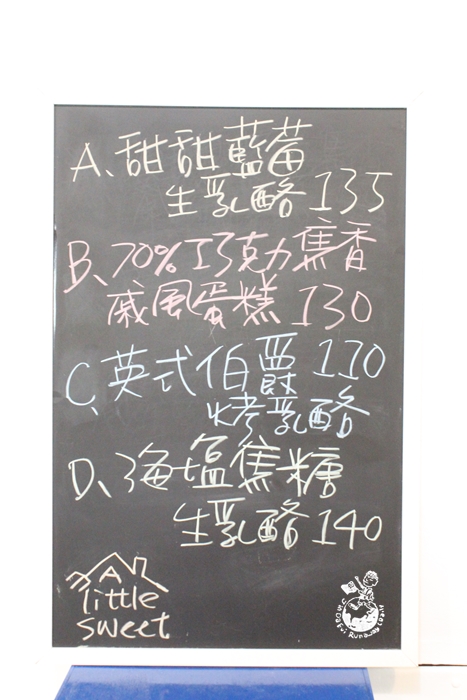 A、甜甜藍莓
生乳酪 135
B、70%巧克力焦香
戚風蛋糕 130
C、英式伯爵 130
烤乳酪
D、海塩焦糖
生乳酪 140
A
little
sweet